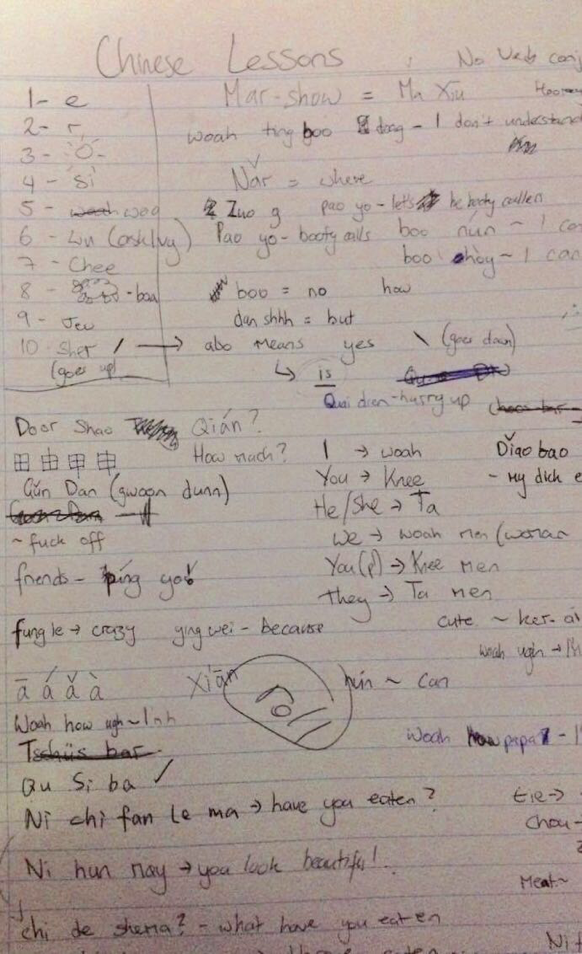 Chinese Lessons
No Verb conj
1- e
Mar-show = Ma Xiu
2- r
woah ting boo dong - I don't understand
3 - O -
4 - Si
Năr = where
5 - woo
Zuo g pao yo - let's be booty callen
6 - Liu
Pao yo - booty calls
boo nún - I can
7 - Chee
boo ohoy ~ I can
8 - baa
boo = no
how
9 - Jeu
dan shhh = but
10 - Sher / → abo means yes \ (goes down)
(goes up)
↳ is
Quai dien - hurry up
Door Shao Qián?
田 由 甲 申
How much?
I → woah
Dĭao bao
Gŭn Dan (gwoon dunn)
You → Knee
- My dick e
He/She → Ta
~ fuck off
We → woah men (woman
friends - píng yo!
You(p) → Knee Men
They → Ta men
fung le → crazy
ying wei - because
cute ~ ker- ai
ā á ǎ à
Xiān
roll
hún ~ can
Woah how ugh ~ I nh
Tschüs bar
Woah papa - I
Qu Si ba ✓
Ni chi fan le ma → have you eaten?
Chou -
Ni hun may → you look beautiful!
Meat ~
chi de shema? - what have you eaten
Ni t